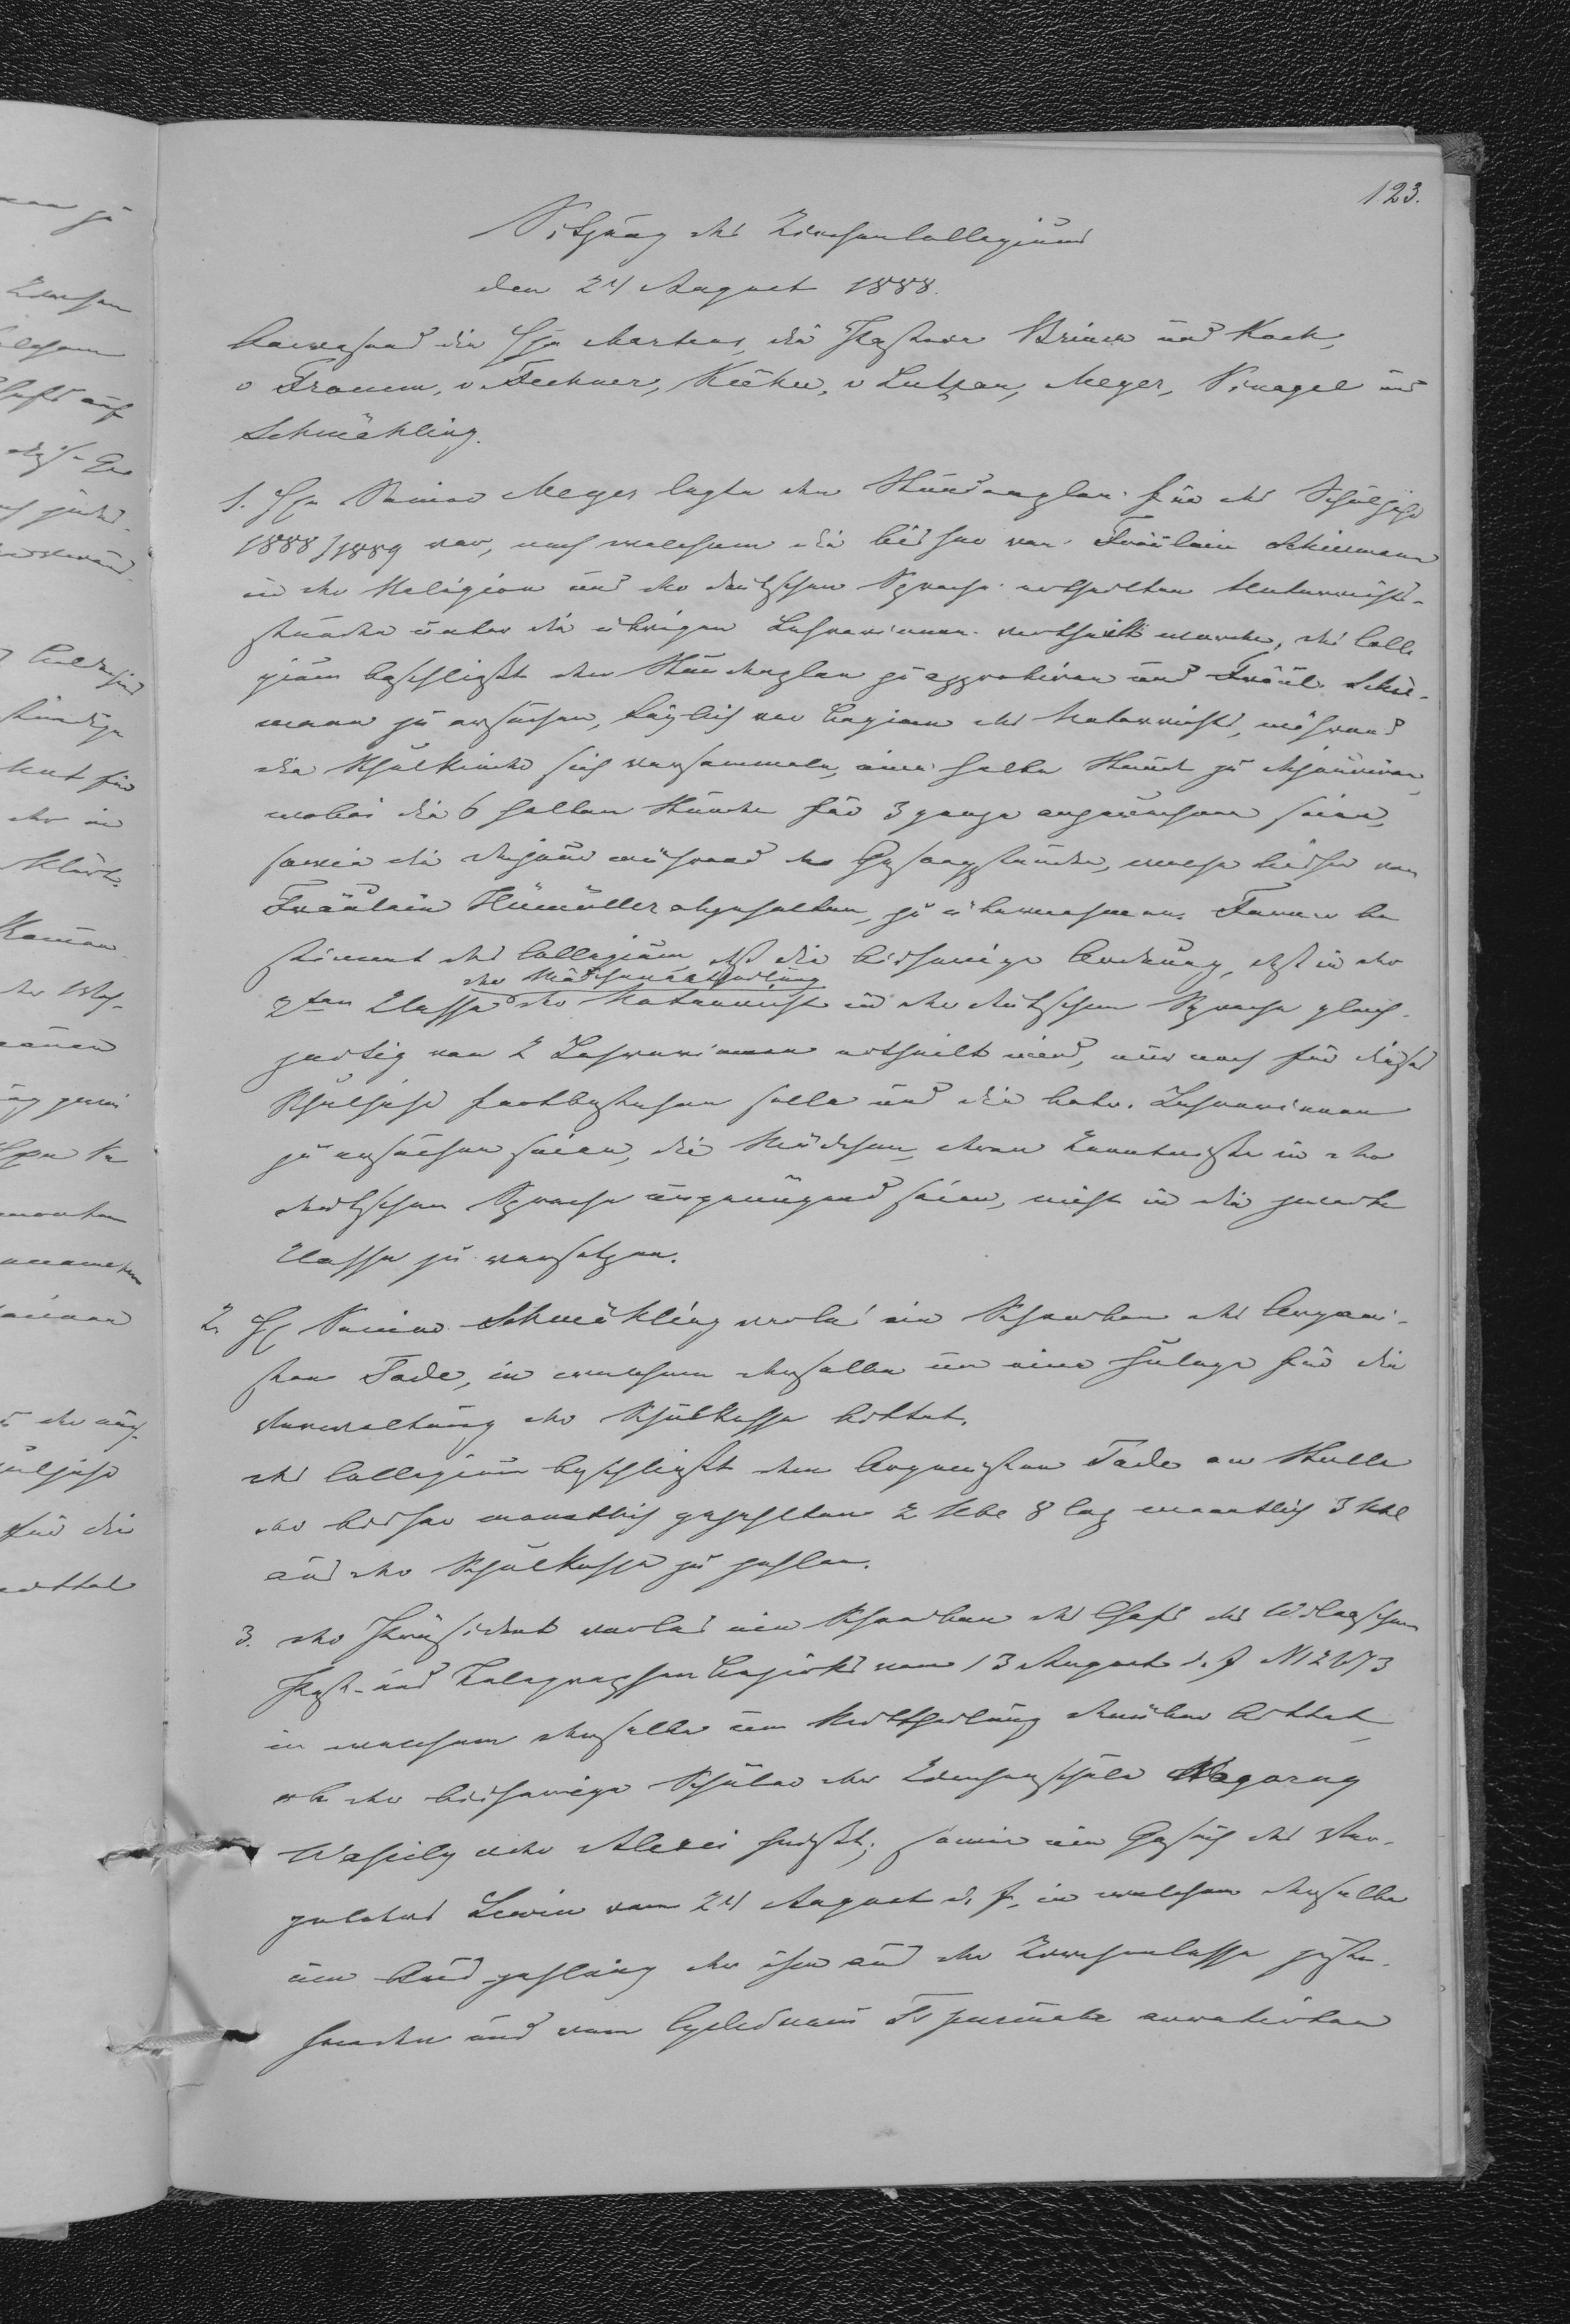 123.
Sitzung des Kirchencollegiums
den 24 August 1888.
Anwesend die HHr Martens, die Pastore Brieer und Kock,
v Fromm, v Fechner, Kühn, v Lutzau, Meyer, Sinagel und
Schmähling.
1. Hr Senior Meyer legte den Stundenplan für das Schuljahr
1888/1889 vor, nach welchem die bisher von Fräulein Schiemann
in der Religion und der deutschen Sprache ertheilten Unterrichts-
stunden unter die übrigen Lehrerinnen vertheilt werden, das Colle
gium beschließt den Stundenplan zu approbiren und Fräul. Schie-
mann zu ersuchen, täglich vor Beginn des Unterrichts, während
die Schulkinder sich versammeln, eine halbe Stunde zu dejouriren,
wobei die 6 halben Stunden für 3 ganze anzurechnen seien,
sowie die Dejour während der Gesangstunden, welche bisher von
Fräulein Hümüller abgehalten, zu übernehmen. Ferner be
stimmt das Collegium daß die bisherige Ordnung, daß in der
der Mädchenabtheilung
2ten Classe der Unterricht in der deutschen Sprache gleich-
zeitig von 2 Lehrerinnen ertheilt wird, nur noch für dieses
Schuljahr fortbestehen solle und die betr. Lehrerinnen
zu ersuchen seien, die Mädchen, deren Kenntnisse in der
deutschen Sprache ungenügend seien, nicht in die zweite
Classe zu versetzen.
2. Hr Senior Schmähling verlas ein Schreiben des Organi-
sten Tode, in welchem derselbe um eine Zulage für die
Verwaltung der Schulkasse bittet.
das Collegium beschließt dem Organisten Tode an Stelle
der bisher monatlich gezahlten 2 Rbl 8 Cop monatlich 3 Rbl
aus der Schulkasse zu zahlen.
3. der Präsident verlas ein Schreiben des Chefs des Wilnaschen
Post- und Telegraphen Bezirks vom 13 August d. J N 12673
in welchem derselbe um Mittheilung darüber bittet,
ob der bisherige Schüler der Kirchenschule
Wassily oder Alexei heißt; sowie ein Gesuch des Ver-
golders Lewin vom 24 August d. J, in welchem derselbe
um Auszahlung der ihm aus der Kirchenkasse zuste-
henden und vom arretirten